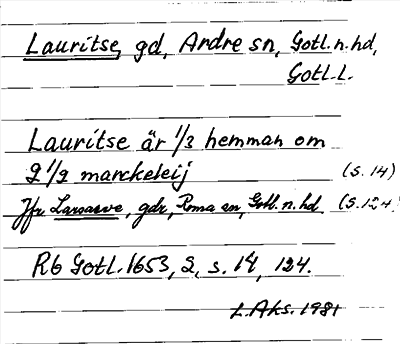 Lauritse, gd, Andre sn, Gotl. n. hd,
Gotl. l.
Lauritse är 1/3 hemman om
2 1/2 marckeleij (s. 14)
Jfr Larsarve, gdr, Roma sn, Gotl. n. hd. (s. 124)
Rb Gotl. 1653, 2, s. 14, 124.
L. Aks. 1981